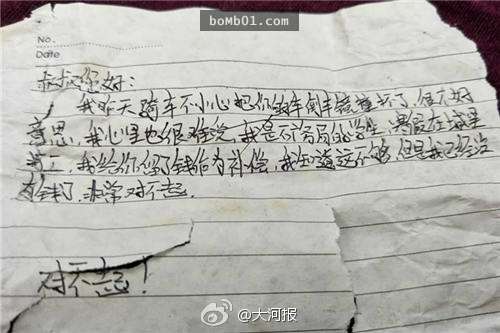 bomb01.com
No.
Date
叔叔您好:
我昨天骑车不小心把你的车倒车镜撞坏了,很不好
意思,我心里也很难受,我是学生,暑假在城里
工,我给你了钱作为补偿,我知道这不够,但是我已经没
有钱了,非常对不起.
对不起!
@大河报